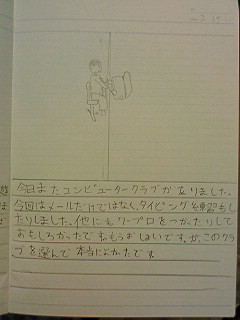 今日またコンピュータークラブがありました。
今回はメールだけではなく、タイピングを練習もし
たりしました。他にもワープロをつかったりして
おもしろかったです。もうおしまいですが、このクラ
ブを選んで本当によかったです